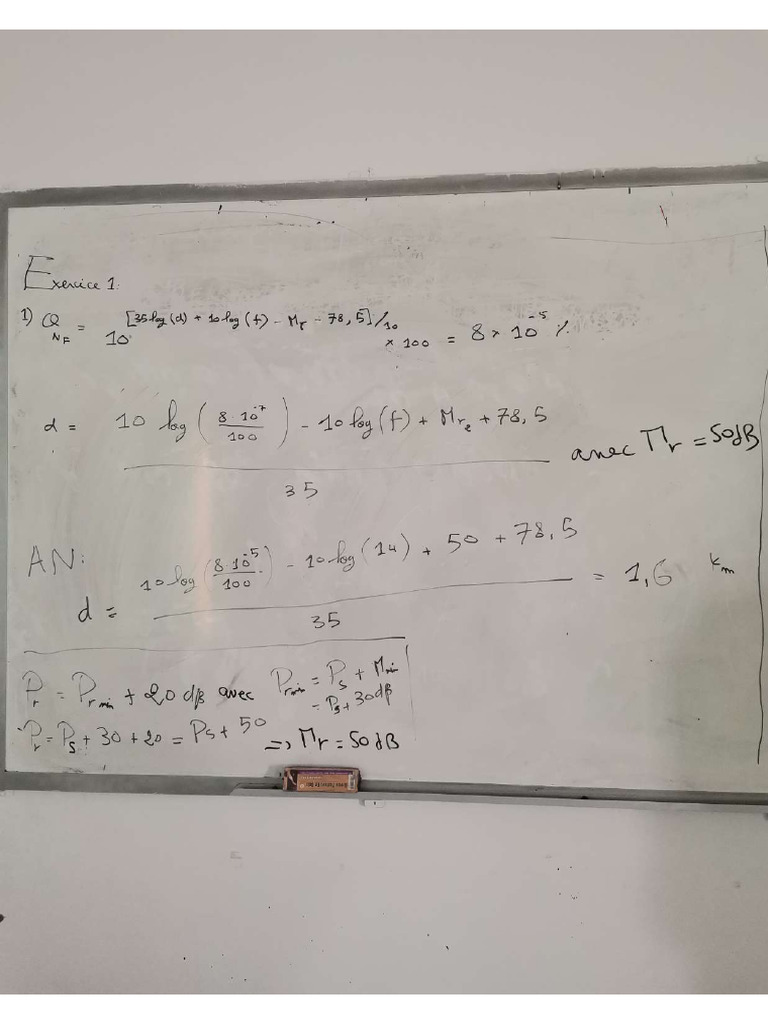 Exercice 1:
1) Q_NF = 10^([35 log(d) + 10 log(f) - Mr - 78,5]/10) × 100 = 8 × 10^-5 %
d = (10 log(8·10^-7/100) - 10 log(f) + Mr_e + 78,5) / 35 avec Mr = 50dB
AN:
d = (10 log(8·10^-5/100) - 10 log(14) + 50 + 78,5) / 35 = 1,6 km
Pr = Pr min + 20 dB avec Pr min = Ps + Mmin
= Ps + 30dB
Pr = Ps + 30 + 20 = Ps + 50 => Mr = 50dB